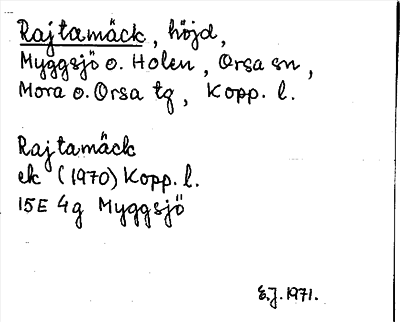 Rajtamäck, höjd,
Myggsjö o. Holen, Orsa sn,
Mora o. Orsa tg, Kopp. l.
Rajtamäck
ek (1970) Kopp. l.
15E 4g Myggsjö
E.J. 1971.